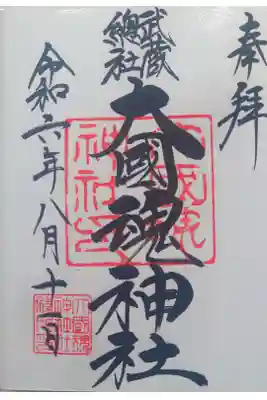 奉拝
武蔵
總社
大國魂神社
令和六年八月十一日